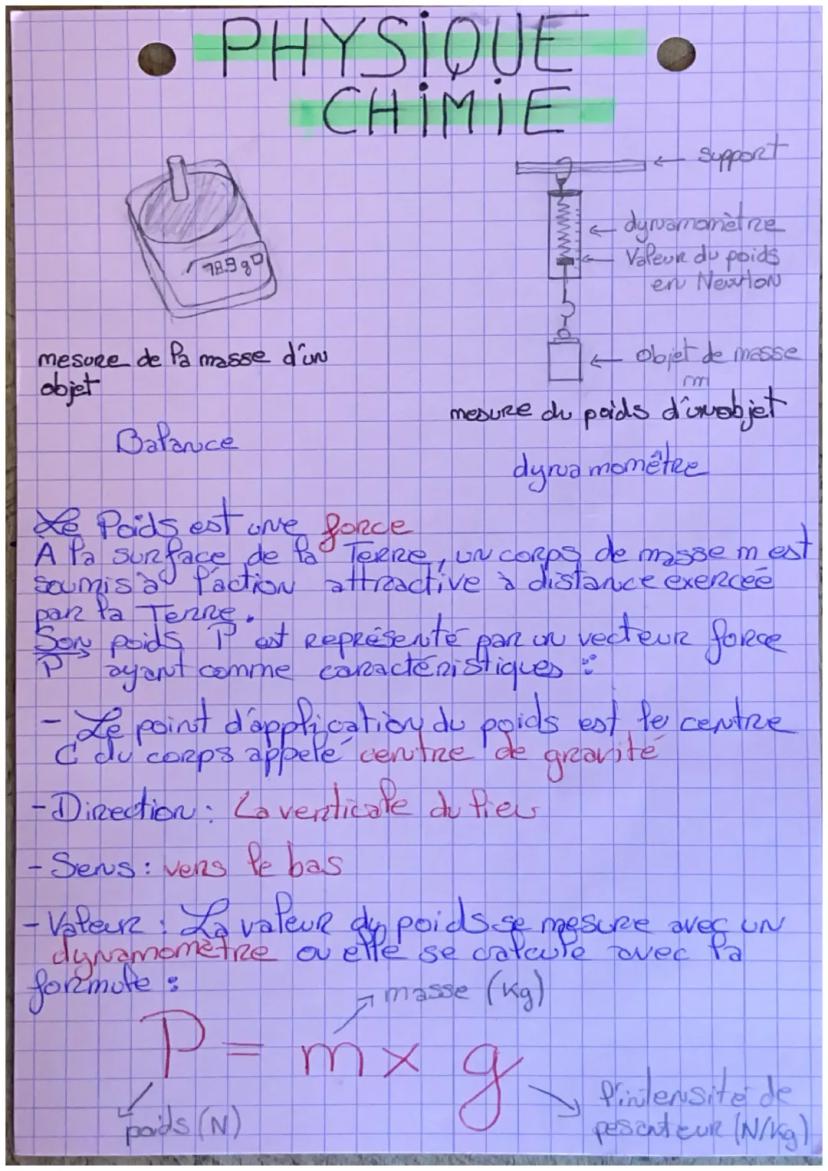 PHYSIQUE
CHIMIE
support
dynamomètre
Valeur du poids
en Newton
78.9 g
mesure de la masse d'un
objet
objet de masse
m
mesure du poids d'un objet
Balance
dynamomêtre
Le Poids est une force
A la surface de la Terre, un corps de masse m est
soumis à l'action attractive à distance exercée
par la Terre.
Son poids P est représenté par un vecteur force
P ayant comme caractéristiques :
- Le point d'application du poids est le centre
C du corps appelé centre de gravité
- Direction : La verticale du lieu
- Sens : vers le bas
- Valeur : La valeur du poids se mesure avec un
dynamomètre ou elle se calcule avec la
formule :
masse (kg)
P = m x g
poids (N)
l'intensité de
pesanteur (N/kg)